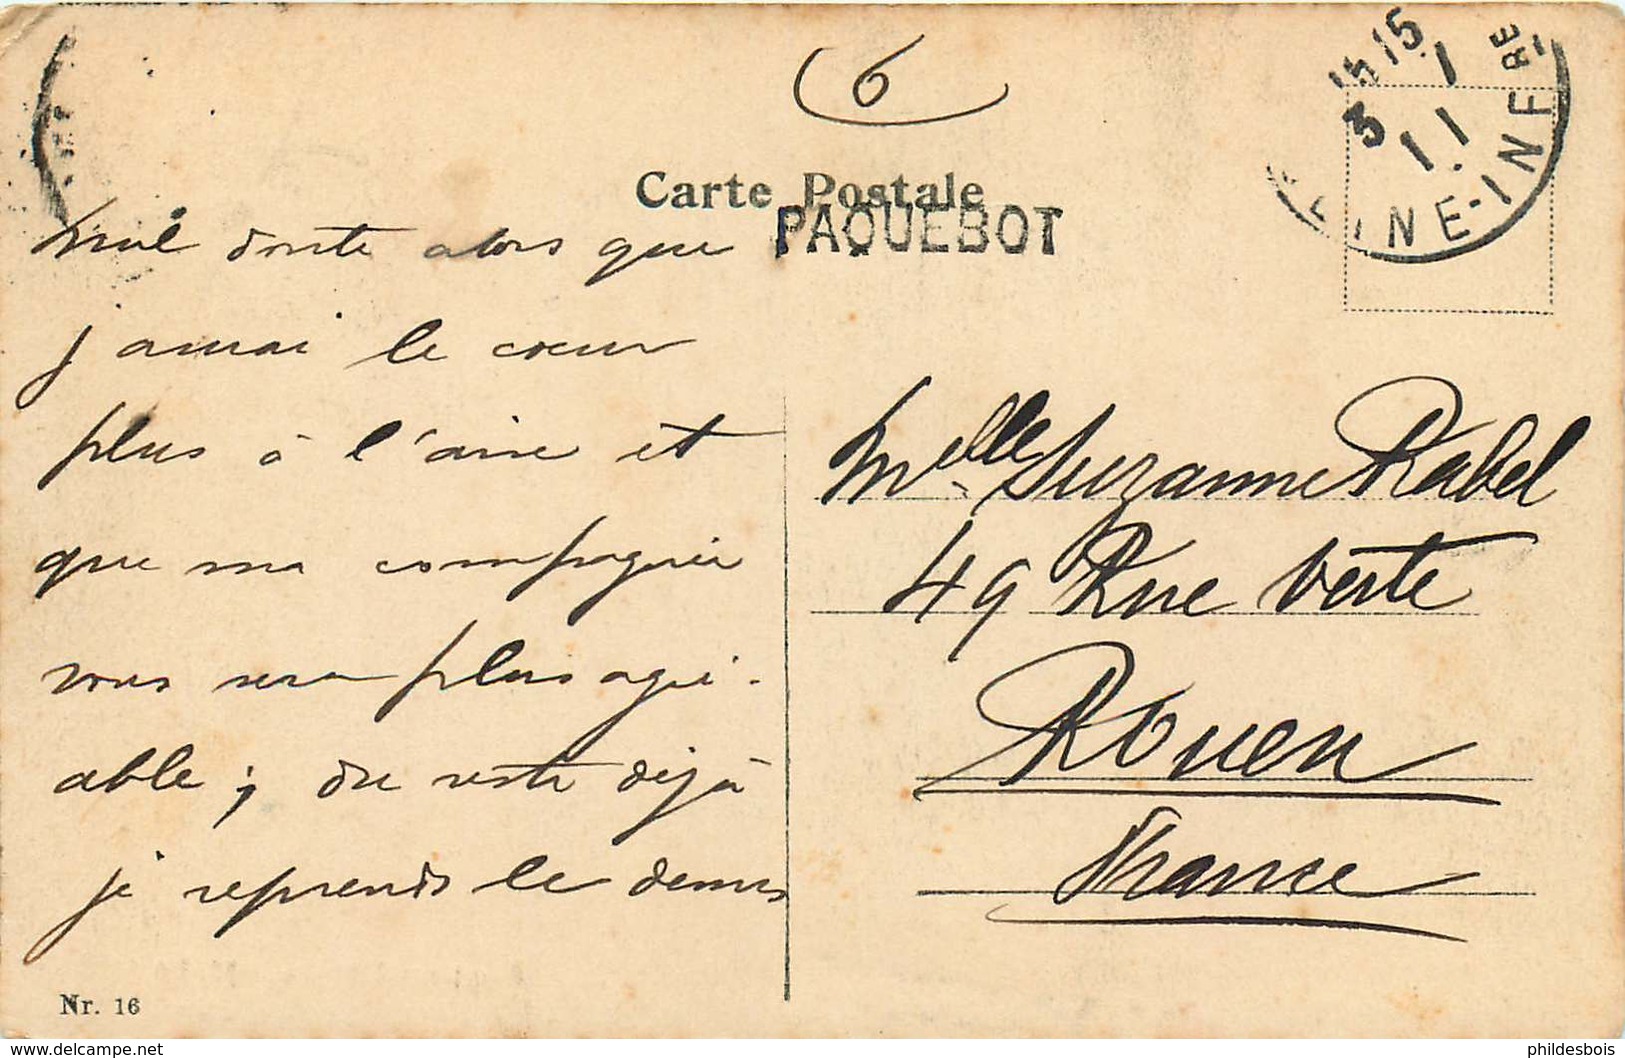 6
Carte Postale
PAQUEBOT
15 15
3 1
11
INE-INF RE
nul doute alors que
j'aurai le cœur
plus à l'aise et
que ma compagnie
vous sera plus agré-
able ; du reste déjà
je reprends le dessus
Melle Suzanne Rabel
49 Rue Verte
Rouen
France
Nr. 16
https://www.delcampe.net
phildesbois